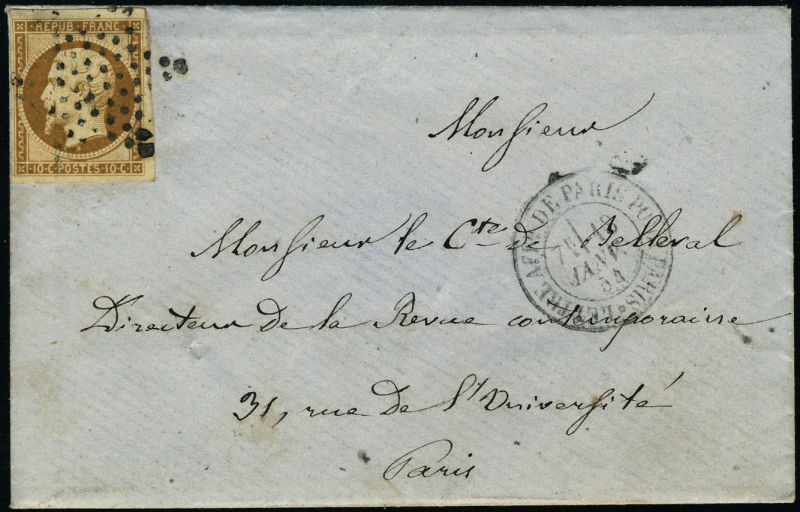 REPUB·FRANC
10·C·POSTES·10·C·
Monsieur
Monsieur le Cte de Belleval
Directeur de la Revue contemporaine
31, rue de l'Université
Paris
LETTRE AFFR. DE PARIS POUR PARIS
1
7E
JANV.
54